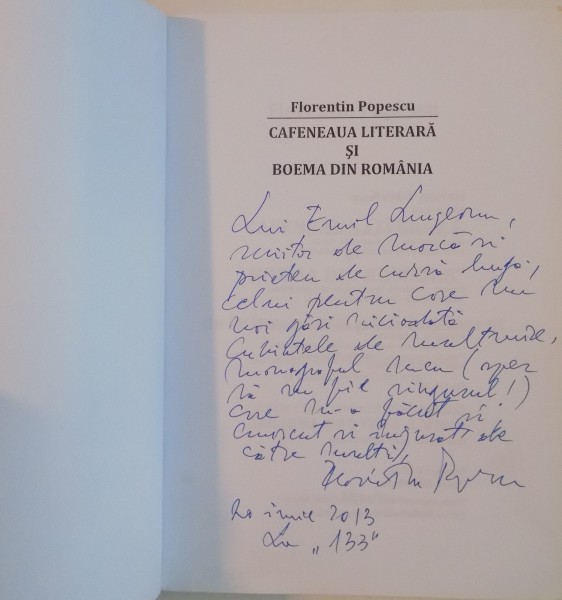 Florentin Popescu
CAFENEAUA LITERARĂ
ŞI
BOEMA DIN ROMÂNIA
Lui Emil Lungeanu,
scriitor de marcă și
prieten de cursă lungă,
celui pentru care nu
voi găsi niciodată
cuvintele de mulțumire,
monograful meu (sper
să nu fie singurul!)
care m-a făcut și
cunoscut și înjurat de
către mulți,
Florentin Popescu
20 iunie 2013
La „133"